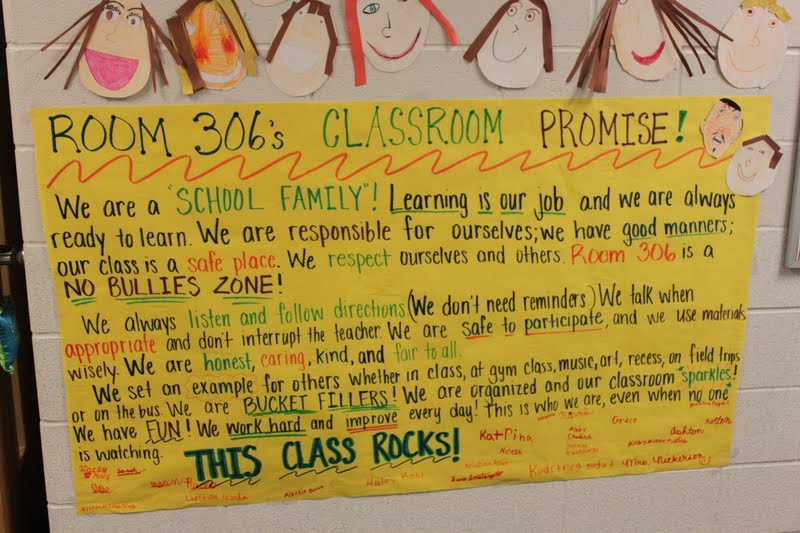 ROOM 306's CLASSROOM PROMISE!
We are a "SCHOOL FAMILY"! Learning is our job and we are always
ready to learn. We are responsible for ourselves; we have good manners;
our class is a safe place. We respect ourselves and others. Room 306 is a
NO BULLIES ZONE!
We always listen and follow directions (We don't need reminders.) We talk when
appropriate and don't interrupt the teacher. We are safe to participate, and we use materials
wisely. We are honest, caring, kind, and fair to all.
We set an example for others whether in class, at gym class, music, art, recess, on field trips
or on the bus. We are BUCKET FILLERS! We are organized and our classroom "sparkles"!
We have FUN! We work hard and improve every day! This is who we are, even when no one
is watching.
THIS CLASS ROCKS!
Katrina
Abby
Grace
Ashton
Kolten
Noah
Sarah
Joe
Haley
Kourtney